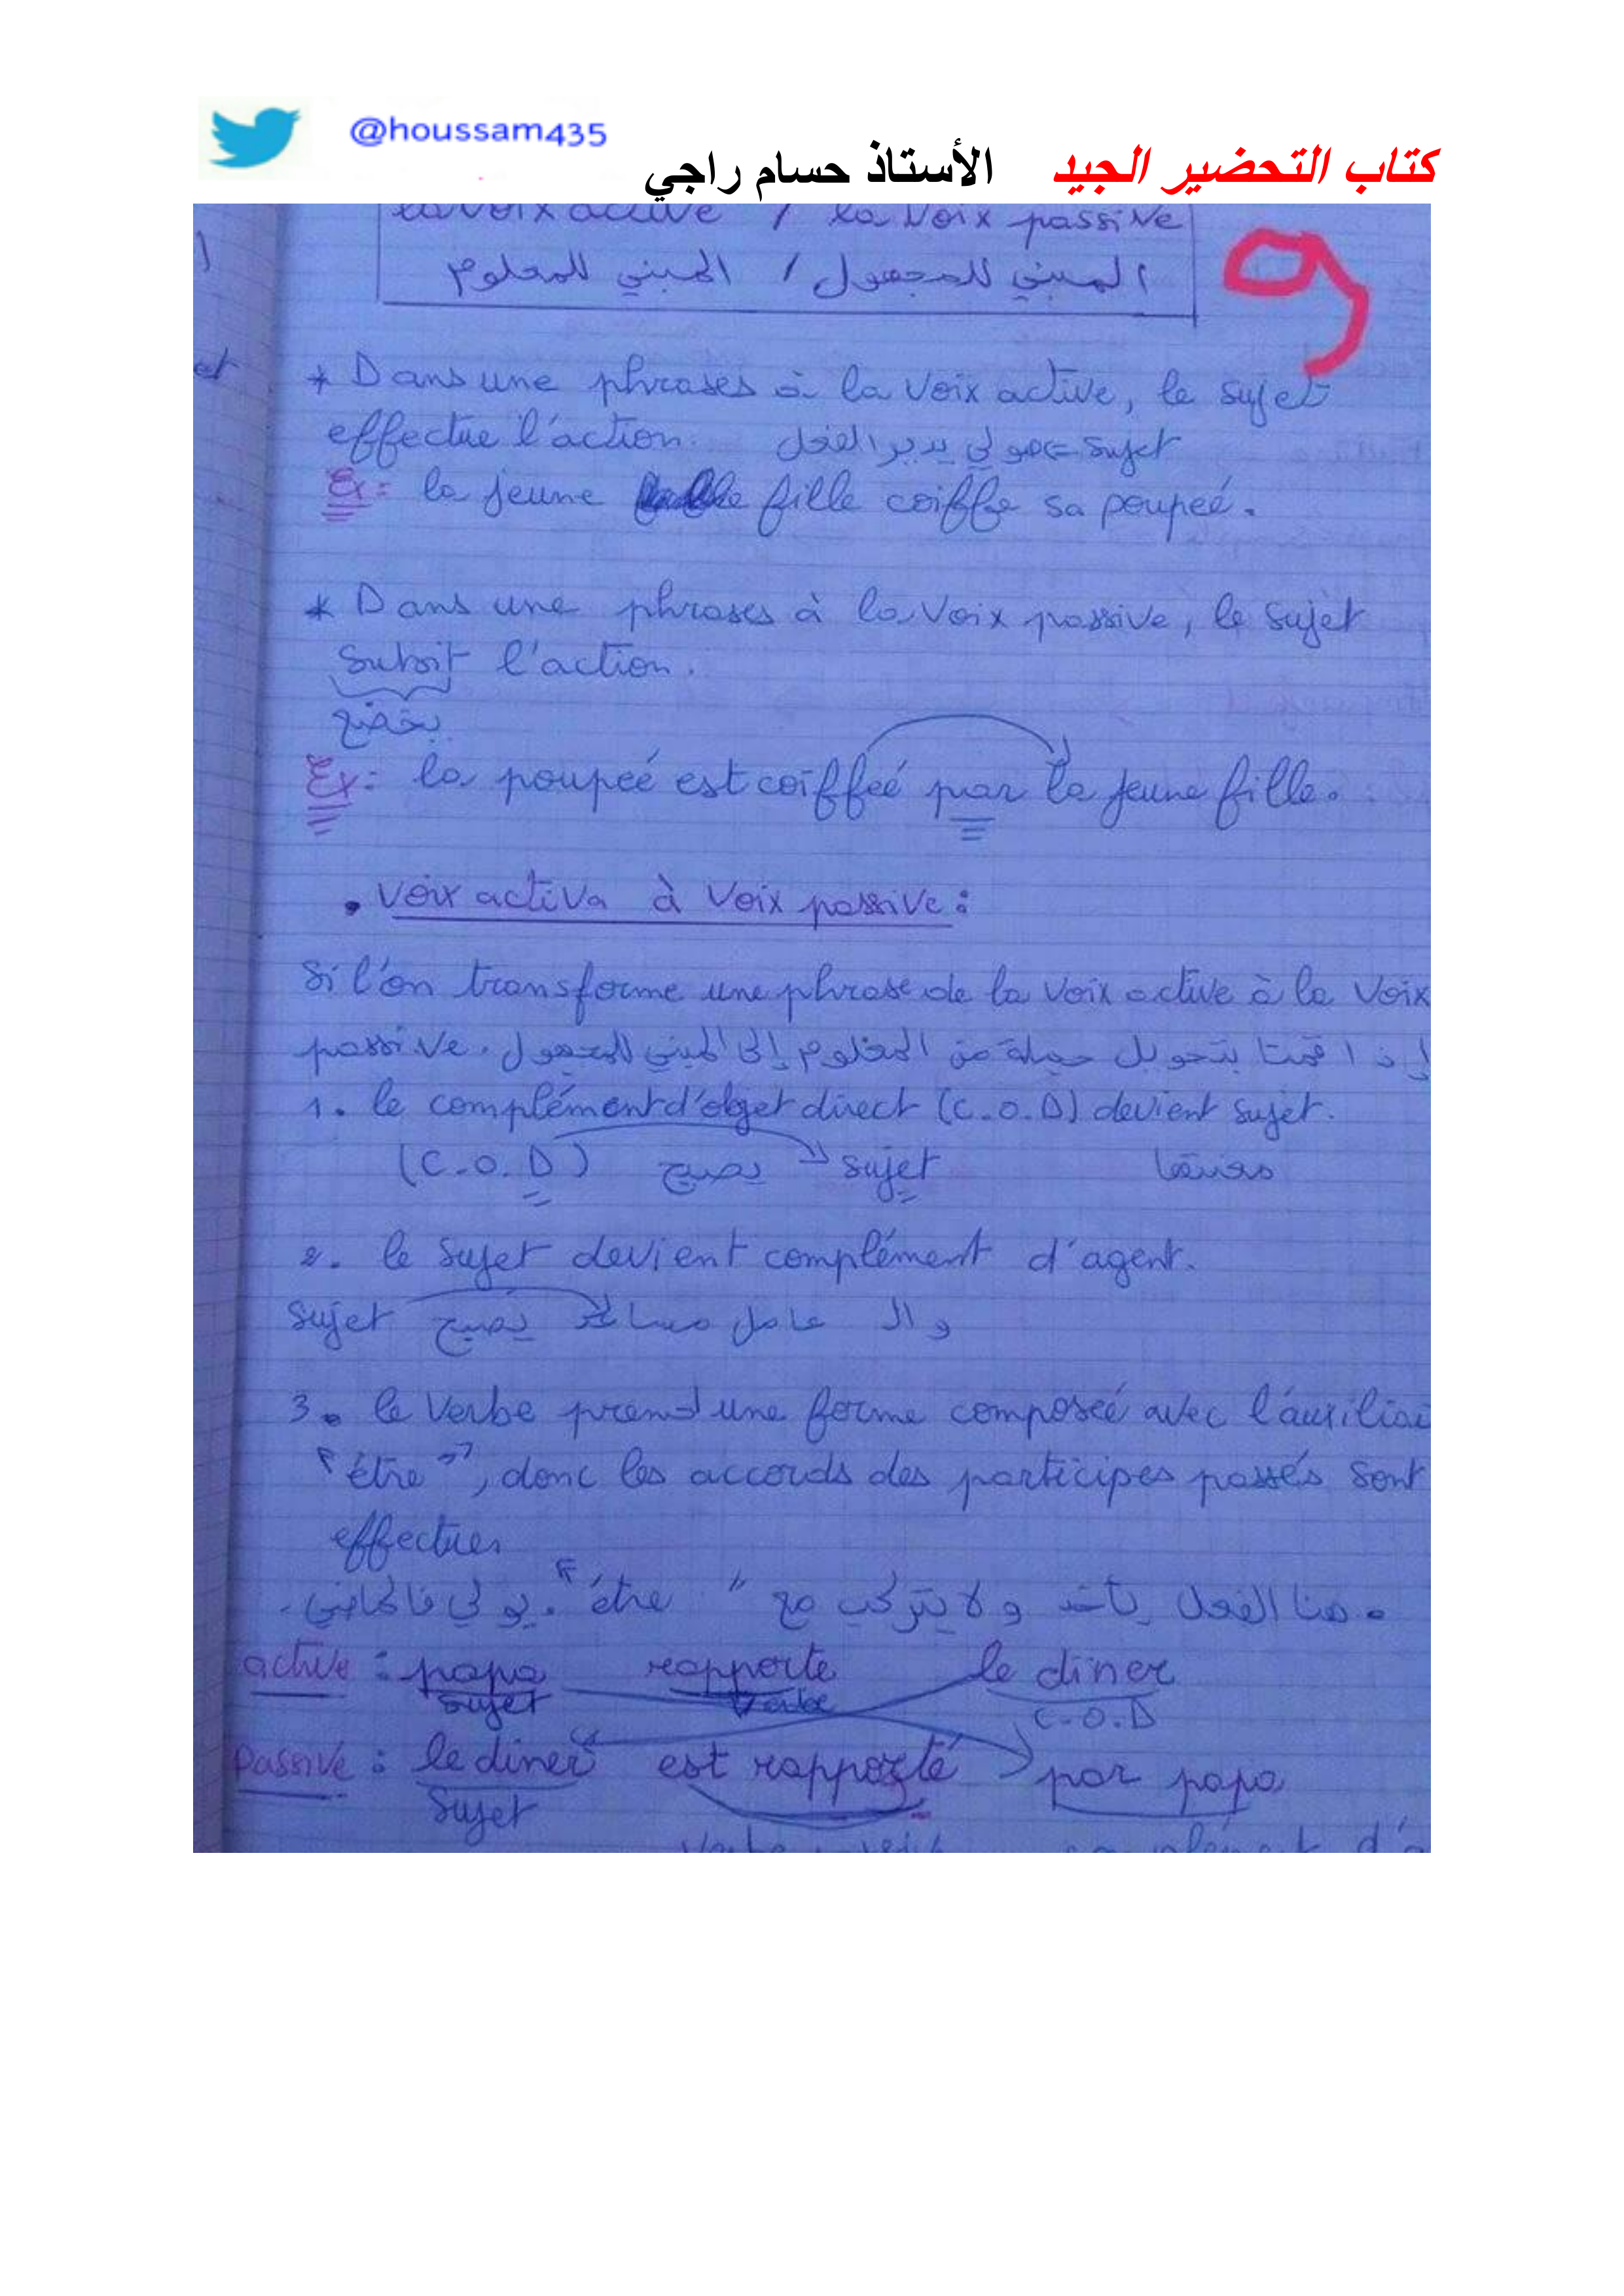 @houssam435
كتاب التحضير الجيد    الأستاذ حسام راجي
la voix active / la Voix passive
المبني للمجهول / المبني للمعلوم
9
et
* Dans une phrases à la voix active, le sujet
effectue l'action. sujet هو لي يدير الفعل
Ex: la jeune fille coiffe sa poupeé.
* Dans une phrases à la Voix passive, le sujet
Subit l'action.
يخضع
Ex: la poupeé est coiffeé par la jeune fille.
. Voix activa à Voix passive:
Si l'on transforme une phrase de la voix active à la Voix
passive. إذا قمنا بتحويل جملة من المعلوم إلى المبني للمجهول
1. le complément d'objet direct (C.O.D) devient sujet.
(C.O.D) يصبح sujet
2. le Sujet devient complément d'agent.
sujet يصبح
3. le Verbe prend une forme composeé avec l'auxiliai
"être", donc les accords des participes passés sont
effectues
. هنا الفعل يأخذ ولا يتركب مع "être".
active : papa rapporte le diner
sujet Verbe C.O.D
Passive : le diner est rapporté par papa
Sujet